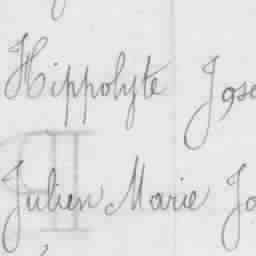 Hippolyte Jose
Julien Marie Jo